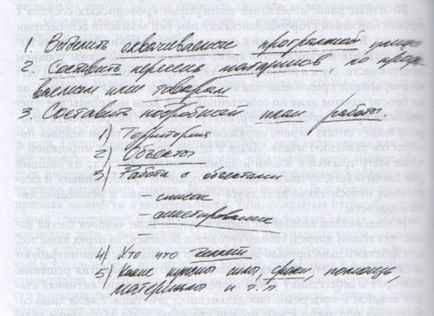 1. Выделить охватываемые программой улицы
2. Составить перечень магазинов, по прода
ваемым ими товарам
3. Составить подробный план работы.
1) Территория
2) Объекты
3) Работа с объектами
– список
– анкетирование
4) Кто что делает
5) Какие нужны силы, сроки, помощь,
материалы и т.п